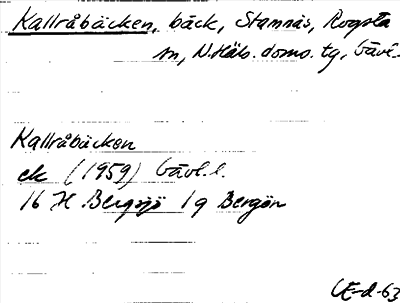 Kallråbäcken, bäck, Stamnäs, Rogsta
sn, N. Häls. doms. tg, Gävl.
Kallråbäcken
ek (1959) Gävl. l.
16 H Bergsjö 1 g Bergön
UE-d-63